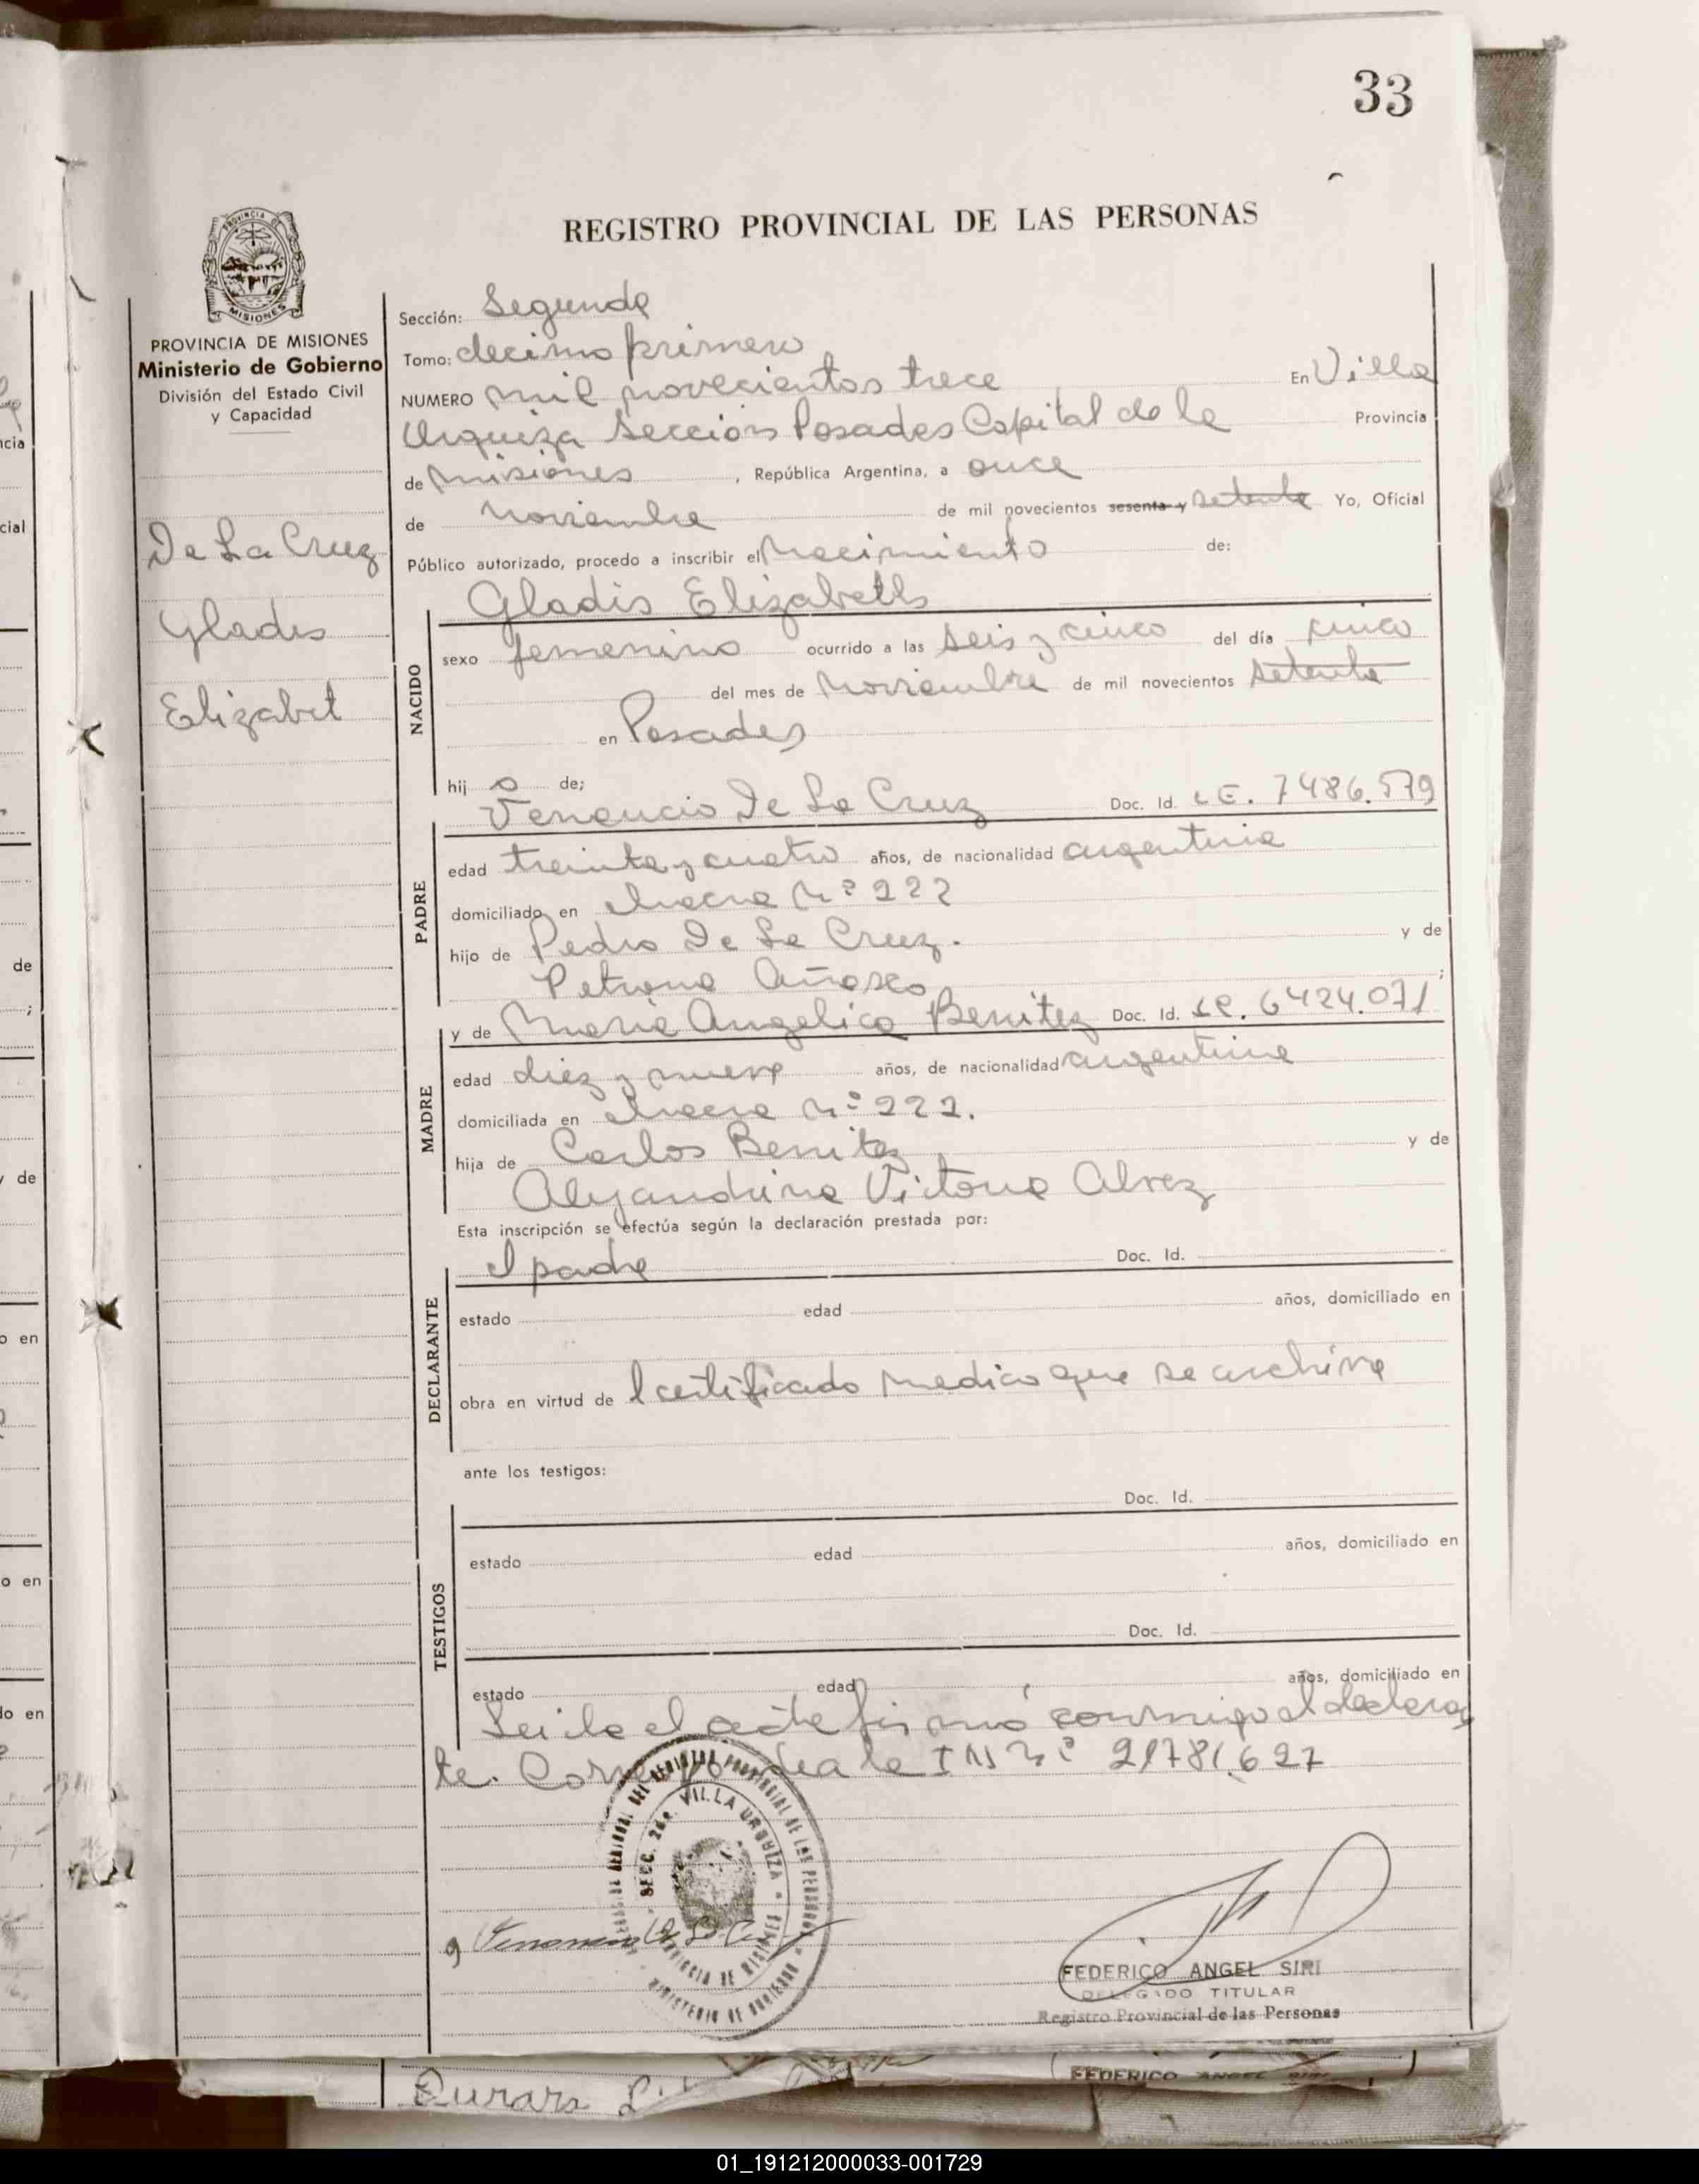 33
REGISTRO PROVINCIAL DE LAS PERSONAS
PROVINCIA DE MISIONES
Ministerio de Gobierno
División del Estado Civil
y Capacidad
De La Cruz
Gladis
Elizabet
Sección: Segunda
Tomo: decimo primero
NUMERO mil novecientos trece En Villa
Urquiza Sección Posadas Capital de la Provincia
de Misiones, República Argentina, a once
de Noviembre de mil novecientos sesenta y setenta Yo, Oficial
Público autorizado, procedo a inscribir el Nacimiento de:
Gladis Elizabeth
NACIDO
sexo femenino ocurrido a las seis y cinco del día cinco
del mes de Noviembre de mil novecientos setenta
en Posadas
hij a de;
Venancio De La Cruz Doc. Id. L E. 7486.579
PADRE
edad treinta y cuatro años, de nacionalidad argentina
domiciliado en chacra Nº 222
hijo de Pedro De La Cruz. y de
Petrona Añasco;
y de Maria Angelica Benitez Doc. Id. LC. 6424.071
MADRE
edad diez y nueve años, de nacionalidad argentina
domiciliada en chacra Nº 222.
hija de Carlos Benitez y de
Alejandrina Victoria Alvez
Esta inscripción se efectúa según la declaración prestada por:
el padre Doc. Id.
DECLARANTE
estado edad años, domiciliado en
obra en virtud de l certificado medico que se archiva
ante los testigos:
Doc. Id.
TESTIGOS
estado edad años, domiciliado en
Doc. Id.
estado edad años, domiciliado en
Leida el acta firmó conmigo el declaran
te. Corresponde a la INNº 21781.627
SECC. 2da. VILLA URQUIZA
PROVINCIA DE MISIONES
MINISTERIO DE GOBIERNO
FEDERICO ANGEL SIRI
DELEGADO TITULAR
Registro Provincial de las Personas
FEDERICO ANGEL SIRI
01_191212000033-001729